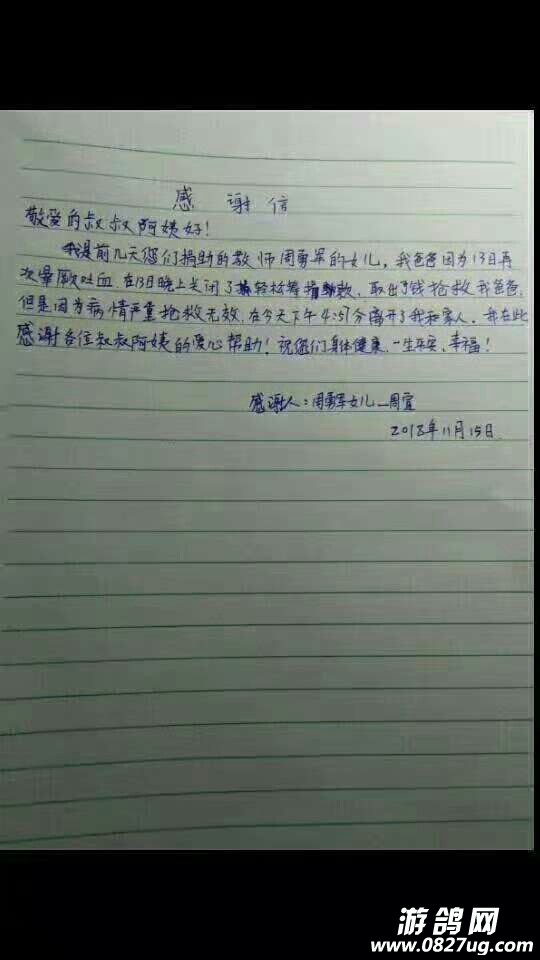 感谢信
敬爱的叔叔阿姨好！
我是前几天您们捐助的教师周勇军的女儿，我爸爸因为13日再
次晕厥吐血，在13日晚上关闭了轻松筹捐款，取出了钱抢救我爸爸，
但是因为病情严重抢救无效，在今天下午4:57分离开了我和家人，我在此
感谢各位叔叔阿姨的爱心帮助！祝您们身体健康、一生平安、幸福！
感谢人：周勇军女儿—周宣
2018年11月15日
游鸽网
www.0827ug.com